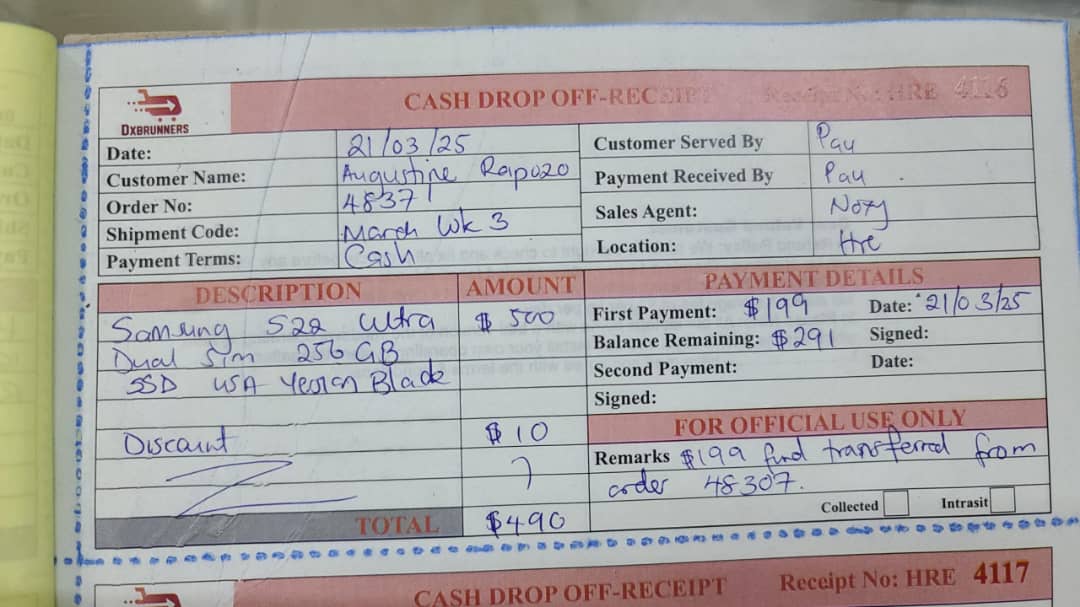 DXBRUNNERS
CASH DROP OFF-RECEIPT Receipt No: HRE 4116
Date: 21/03/25 Customer Served By Pau
Customer Name: Augustine Rapozo Payment Received By Pau
Order No: 48371 Sales Agent: Noxy
Shipment Code: March Wk 3 Location: Hre
Payment Terms: Cash
DESCRIPTION AMOUNT PAYMENT DETAILS
Samsung S22 Ultra $500 First Payment: $199 Date: 21/03/25
Dual Sim 256 GB Balance Remaining: $291 Signed:
SSD USA Version Black Second Payment: Date:
Signed:
FOR OFFICIAL USE ONLY
Discount $10 Remarks $199 fund transferred from
order 48307.
Collected Intrasit
TOTAL $490
CASH DROP OFF-RECEIPT Receipt No: HRE 4117